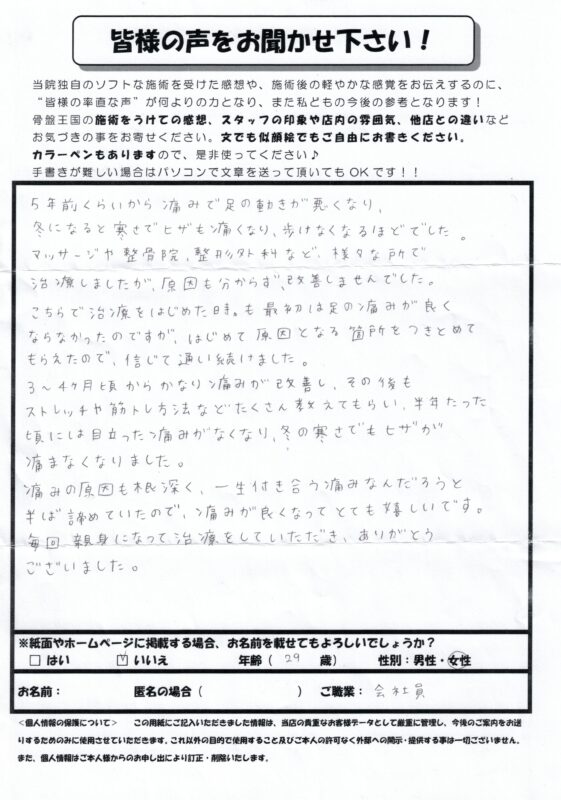 皆様の声をお聞かせ下さい！
当院独自のソフトな施術を受けた感想や、施術後の軽やかな感覚をお伝えするのに、
“皆様の率直な声”が何よりの力となり、また私どもの今後の参考となります！
骨盤王国の施術をうけての感想、スタッフの印象や店内の雰囲気、他店との違いなど
お気づきの事をお寄せください。文でも似顔絵でもご自由にお書きください。
カラーペンもありますので、是非使ってください♪
手書きが難しい場合はパソコンで文章を送って頂いてもOKです！！
5年前くらいから痛みで足の動きが悪くなり、
冬になると寒さでヒザも痛くなり、歩けなくなるほどでした。
マッサージや整骨院、整形外科など、様々な所で
治療しましたが、原因も分からず、改善しませんでした。
こちらで治療をはじめた時も最初は足の痛みが良く
ならなかったのですが、はじめて原因となる箇所をつきとめて
もらえたので、信じて通い続けました。
3～4ヶ月頃からかなり痛みが改善し、その後も
ストレッチや筋トレ方法などたくさん教えてもらい、半年たった
頃には目立った痛みがなくなり、冬の寒さでもヒザが
痛まなくなりました。
痛みの原因も根深く、一生付き合う痛みなんだろうと
半ば諦めていたので、痛みが良くなってとても嬉しいです。
毎回親身になって治療をしていただき、ありがとう
ございました。
※紙面やホームページに掲載する場合、お名前を載せてもよろしいでしょうか？
□ はい ☑ いいえ 年齢（ 29 歳） 性別：男性・女性
お名前： 匿名の場合（ ） ご職業： 会社員
<個人情報の保護について> この用紙にご記入いただきました情報は、当店の貴重なお客様データとして厳重に管理し、今後のご案内をお送
りするためのみに使用させていただきます。これ以外の目的で使用すること及びご本人の許可なく外部への開示・提供する事は一切ございません。
また、個人情報はご本人様からのお申し出により訂正・削除いたします。